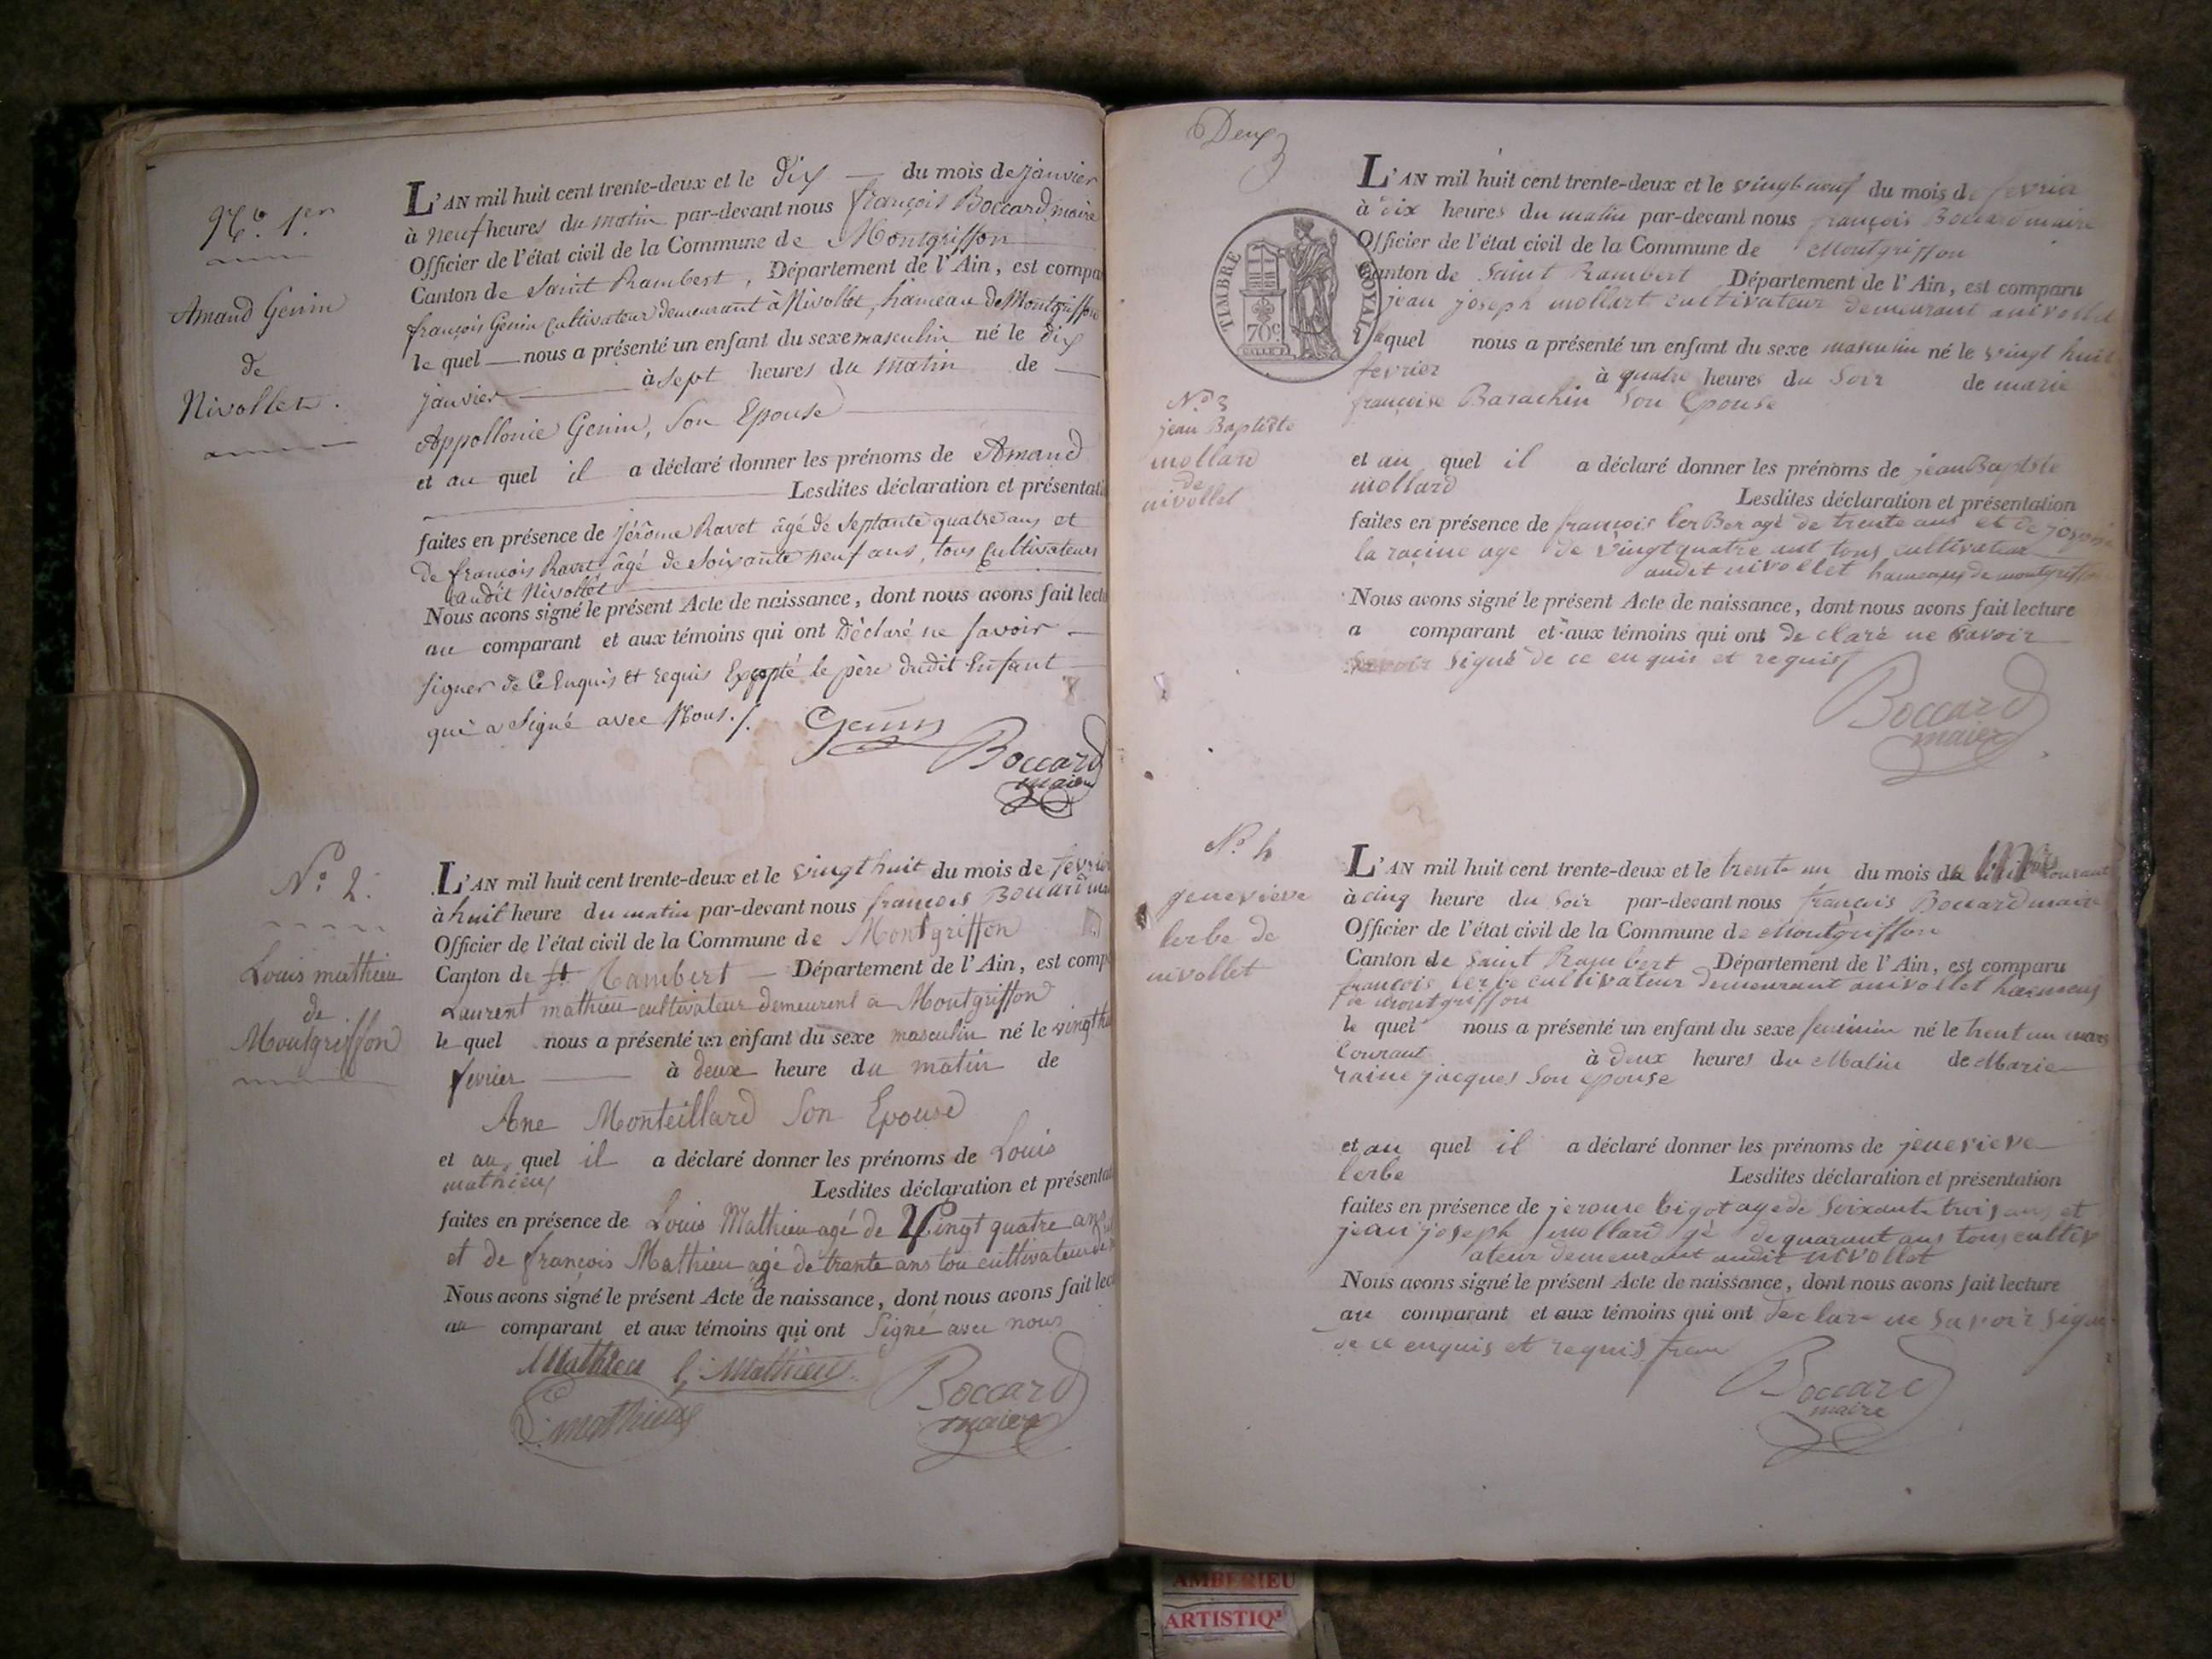 No. 1.er
Amand Genin
de
Nivollet.
L'AN mil huit cent trente-deux et le dix du mois de janvier
à neuf heures du matin par-devant nous françois Boccard maire
Officier de l'état civil de la Commune de Montgriffon
Canton de Saint Rambert, Département de l'Ain, est compa
françois Genin cultivateur demeurant à Nivollet, hameau de Montgriffon
le quel nous a présenté un enfant du sexe masculin né le dix
janvier à sept heures du matin de
Appollonie Genin, son Epouse
et au quel il a déclaré donner les prénoms de Amand
Lesdites déclaration et présentati
faites en présence de Jérôme Ravet âgé de septante quatre ans et
de françois Ravet âgé de soixante neuf ans, tous cultivateurs
audit Nivollet
Nous avons signé le présent Acte de naissance, dont nous avons fait lectu
au comparant et aux témoins qui ont Déclaré ne savoir
signer de ce Enquis et requis Excepté le père dudit Enfant
qui a signé avec Nous./.
Genin
Boccard
maire
No. 2.
Louis mathieu
de
Montgriffon
L'AN mil huit cent trente-deux et le vingt huit du mois de fevrier
à huit heure du matin par-devant nous francois Boccard mai
Officier de l'état civil de la Commune de Montgriffon
Canton de St Rambert Département de l'Ain, est comp
Laurent mathieu cultivateur demeurent a Montgriffon
le quel nous a présenté un enfant du sexe masculin né le vingt hu
fevrier à deux heure du matin de
Ane Monteillard Son Epouse
et au quel il a déclaré donner les prénoms de Louis
mathieu
Lesdites déclaration et présentat
faites en présence de Louis Mathieu agé de Vingt quatre ans
et de françois Mathieu agé de trente ans tou cultivateur
Nous avons signé le présent Acte de naissance, dont nous avons fait lec
au comparant et aux témoins qui ont Signé avec nous
Mathieu L Mathieu
Boccard
maire
mathieu
Deux
TIMBRE ROYAL
70c
L'AN mil huit cent trente-deux et le vingt neuf du mois de fevrier
à dix heures du matin par-devant nous françois Boccard maire
Officier de l'état civil de la Commune de Montgriffon
Canton de Saint Rambert Département de l'Ain, est comparu
jean joseph mollart cultivateur demeurant anivollet
lequel nous a présenté un enfant du sexe masculin né le vingt huit
fevrier à quatre heures du Soir de marie
françoise Barachin son epouse
No. 3
jean Baptiste
mollard
de
nivollet
et au quel il a déclaré donner les prénoms de jean Baptiste
mollard
Lesdites déclaration et présentation
faites en présence de françois lerBer agé de trente ans et de
la racine age de vingtquatre ant tous cultivateur
audit nivollet hameaux de montgriffon
Nous avons signé le présent Acte de naissance, dont nous avons fait lecture
a comparant et aux témoins qui ont de claré ne savoir
signé de ce enquis et requis
Boccard
maire
No. 4
genevieve
lerbe de
nivollet
L'AN mil huit cent trente-deux et le trente un du mois de courant
à cinq heure du soir par-devant nous françois Boccard maire
Officier de l'état civil de la Commune de Montgriffon
Canton de Saint Rambert Département de l'Ain, est comparu
francois lerbe cultivateur demeurant anivollet
de montgriffon
le quel nous a présenté un enfant du sexe feminin né le trent un mars
Courant à deux heures du Matin de Marie
raine jacques Son epouse
et au quel il a déclaré donner les prénoms de jenevieve
lerbe
Lesdites déclaration et présentation
faites en présence de jerome bigot age de soixante trois ans et
jean joseph mollard gé de quarant ans tous cultiv
ateur demeurant audit nivollet
Nous avons signé le présent Acte de naissance, dont nous avons fait lecture
au comparant et aux témoins qui ont declare ne savoir signe
de ce enquis et requis
Boccard
maire
AMBERIEU
ARTISTIQ